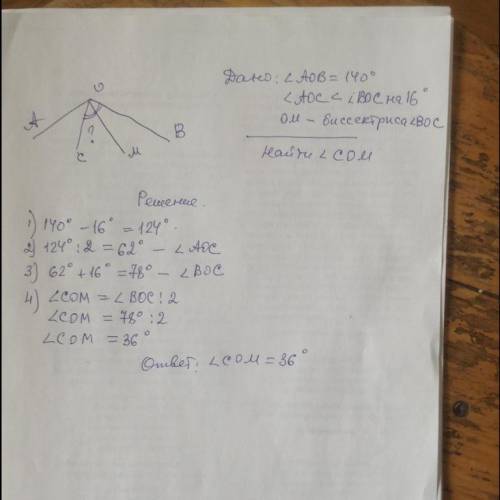 O
A
B
?
C
M
Дано: ∠AOB = 140°
∠AOC < ∠BOC на 16°
OM - биссектриса ∠BOC
Найти ∠COM
Решение.
1) 140° - 16° = 124°.
2) 124° : 2 = 62° - ∠AOC
3) 62° + 16° = 78° - ∠BOC
4) ∠COM = ∠BOC : 2
∠COM = 78° : 2
∠COM = 36°
Ответ: ∠COM = 36°